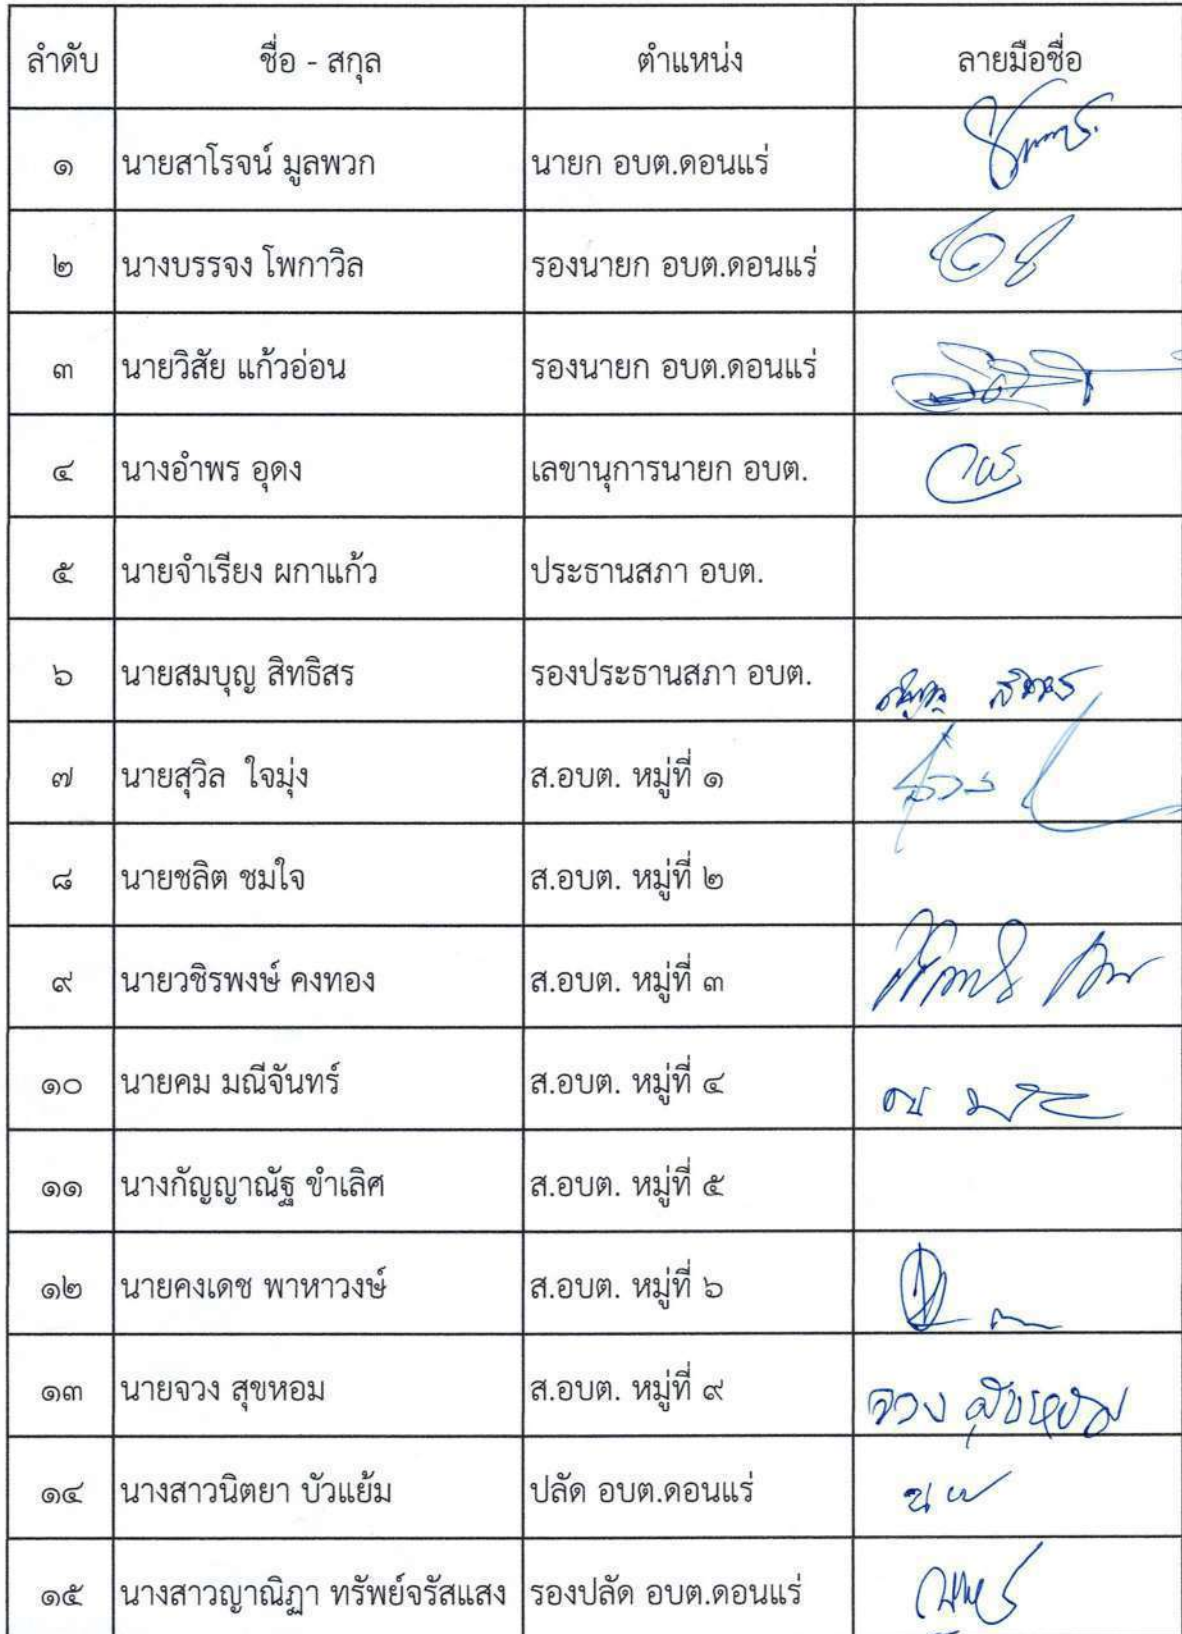 ลำดับ ชื่อ - สกุล ตำแหน่ง ลายมือชื่อ
๑ นายสาโรจน์ มูลพวก นายก อบต.ดอนแร่
๒ นางบรรจง โพกาวิล รองนายก อบต.ดอนแร่
๓ นายวิสัย แก้วอ่อน รองนายก อบต.ดอนแร่
๔ นางอำพร อุดง เลขานุการนายก อบต.
๕ นายจำเรียง ผกาแก้ว ประธานสภา อบต.
๖ นายสมบุญ สิทธิสร รองประธานสภา อบต.
๗ นายสุวิล ใจมุ่ง ส.อบต. หมู่ที่ ๑
๘ นายชลิต ชมใจ ส.อบต. หมู่ที่ ๒
๙ นายวชิรพงษ์ คงทอง ส.อบต. หมู่ที่ ๓
๑๐ นายคม มณีจันทร์ ส.อบต. หมู่ที่ ๔
๑๑ นางกัญญาณัฐ ขำเลิศ ส.อบต. หมู่ที่ ๕
๑๒ นายคงเดช พาหาวงษ์ ส.อบต. หมู่ที่ ๖
๑๓ นายจวง สุขหอม ส.อบต. หมู่ที่ ๙ จวง สุขหอม
๑๔ นางสาวนิตยา บัวแย้ม ปลัด อบต.ดอนแร่
๑๕ นางสาวญาณิฏา ทรัพย์จรัสแสง รองปลัด อบต.ดอนแร่